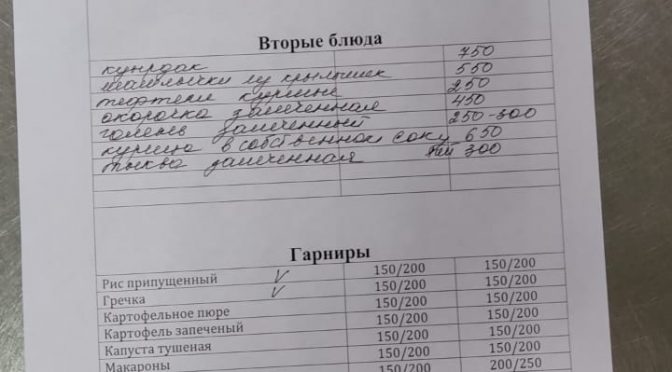 Вторые блюда
куырдак 750
шашлычки из крылышек 550
тефтели куриные 250
окорочка запеченная 450
голень запеченный 250-300
курица в собственном соку 650
тыква запеченная 300
Гарниры
Рис припущенный 150/200 150/200
Гречка 150/200 150/200
Картофельное пюре 150/200 150/200
Картофель запеченый 150/200 150/200
Капуста тушеная 150/200 150/200
Макароны 150/200 200/250